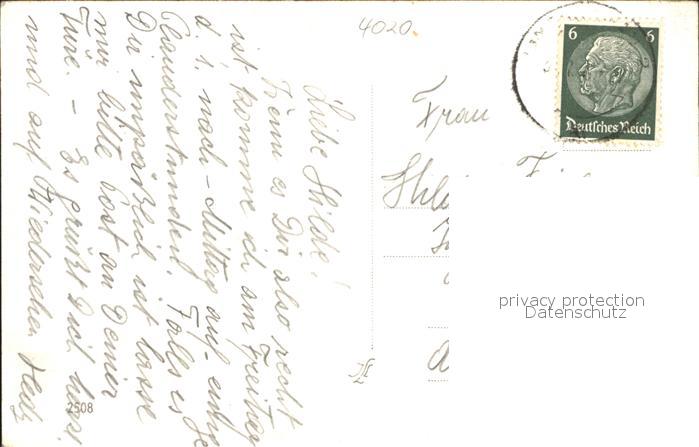 4020
Liebe Hilde!
Wenn es Dir also recht
ist komme ich am Freitag
d. 1. nach-Mittag auf einige
Plauderstunden. Falls es
Dir unpäßlich ist lasse
mir bitte Post an Deiner
Türe. - Es grüßt Dich herzl.
und auf Wiedersehen
2508
Frau
6 6
Deutsches Reich
privacy protection
Datenschutz